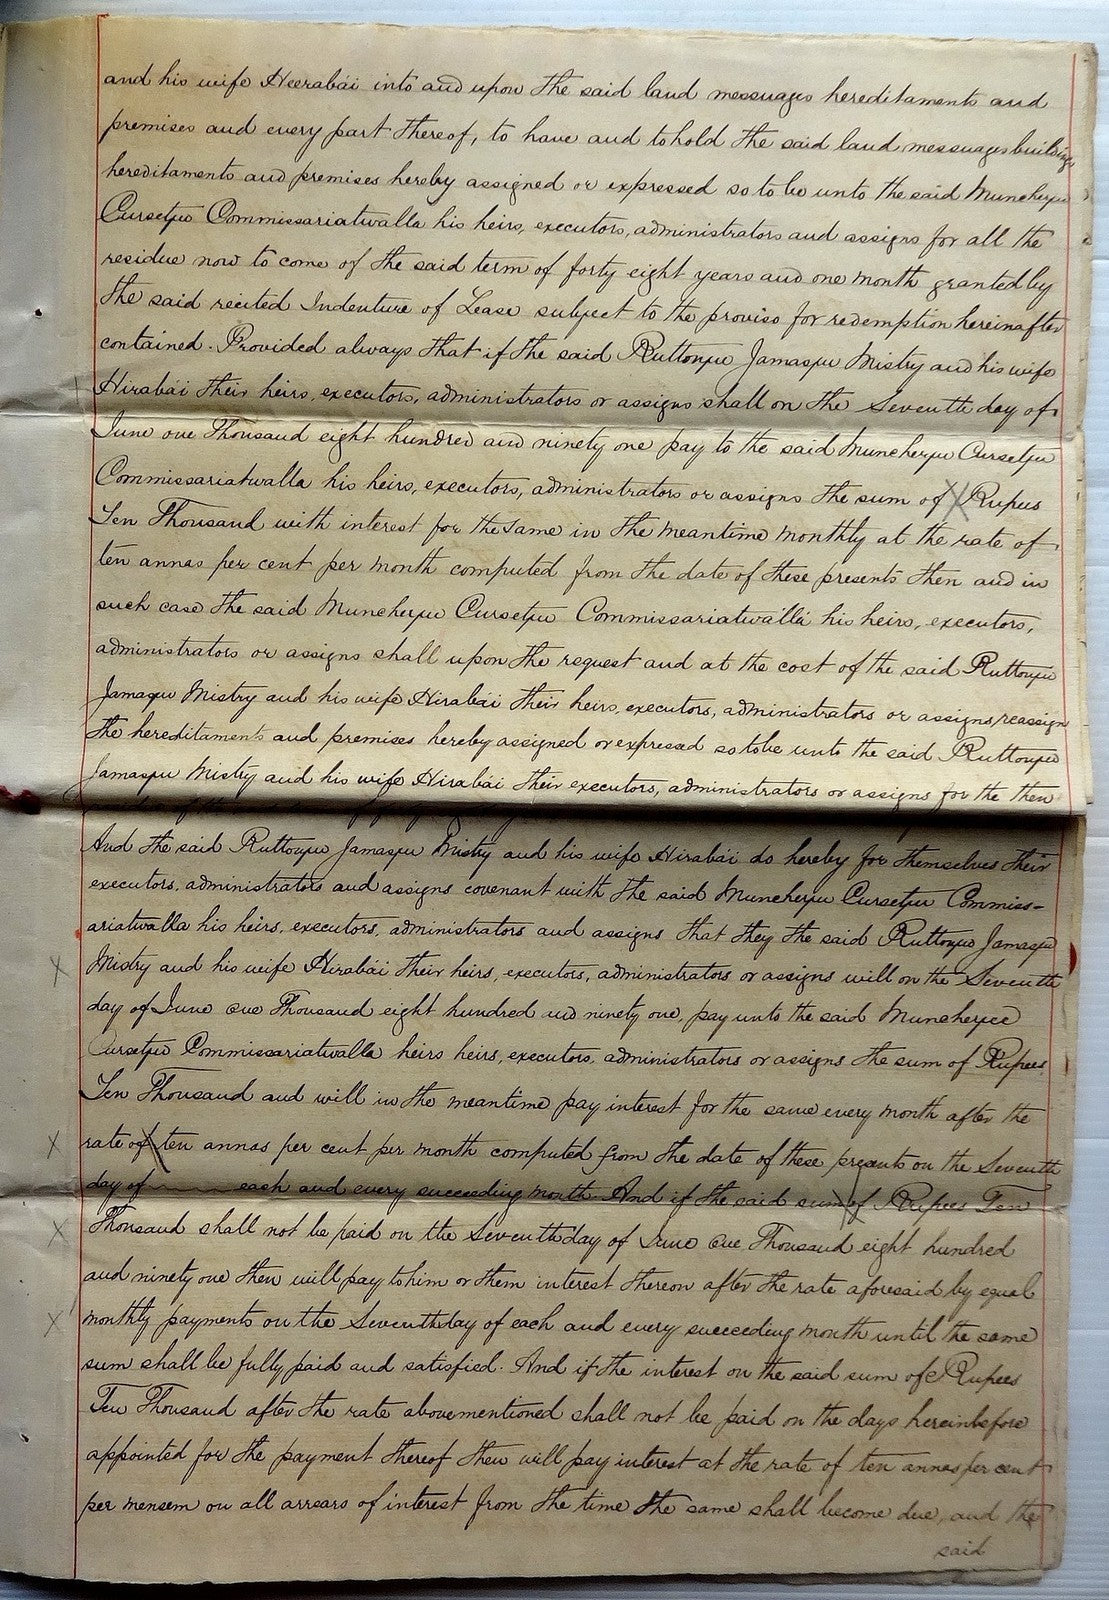 and his wife Heerabái into and upon the said land messuages hereditaments and
premises and every part thereof, to have and to hold the said land messuages buildings
hereditaments and premises hereby assigned or expressed so to be unto the said Muncherjee
Cursetjee Commissariatwalla his heirs, executors, administrators and assigns for all the
residue now to come of the said term of forty eight years and one month granted by
the said recited Indenture of Lease subject to the proviso for redemption hereinafter
contained. Provided always that if the said Ruttonjee Jamasjee Mistry and his wife
Hirabái their heirs, executors, administrators or assigns shall on the Seventh day of
June one Thousand eight hundred and ninety one pay to the said Muncherjee Cursetjee
Commissariatwalla his heirs, executors, administrators or assigns the sum of Rupees
Ten Thousand with interest for the same in the meantime monthly at the rate of
ten annas per cent per month computed from the date of these presents then and in
such case the said Muncherjee Cursetjee Commissariatwalla his heirs, executors,
administrators or assigns shall upon the request and at the cost of the said Ruttonjee
Jamasjee Mistry and his wife Hirabái their heirs, executors, administrators or assigns reassign
the hereditaments and premises hereby assigned or expressed so to be unto the said Ruttonjee
Jamasjee Mistry and his wife Hirabái their executors, administrators or assigns for the then
And the said Ruttonjee Jamasjee Mistry and his wife Hirabái do hereby for themselves their
executors, administrators and assigns covenant with the said Muncherjee Cursetjee Commiss-
ariatwalla his heirs, executors, administrators and assigns that they the said Ruttonjee Jamasjee
Mistry and his wife Hirabái their heirs, executors, administrators or assigns will on the Seventh
day of June one Thousand eight hundred and ninety one, pay unto the said Muncherjee
Cursetjee Commissariatwalla heirs heirs, executors, administrators or assigns the sum of Rupees
Ten Thousand and will in the meantime pay interest for the same every month after the
rate of ten annas per cent per month computed from the date of these presents on the Seventh
day of each and every succeeding month And if the said sum of Rupees Ten
Thousand shall not be paid on the Seventh day of June one Thousand eight hundred
and ninety one then will pay to him or them interest thereon after the rate aforesaid by equal
monthly payments on the Seventh day of each and every succeeding month until the same
sum shall be fully paid and satisfied. And if the interest on the said sum of Rupees
Ten Thousand after the rate abovementioned shall not be paid on the days hereinbefore
appointed for the payment thereof then will pay interest at the rate of ten annas per cent
per mensem on all arrears of interest from the time the same shall become due, and the
said